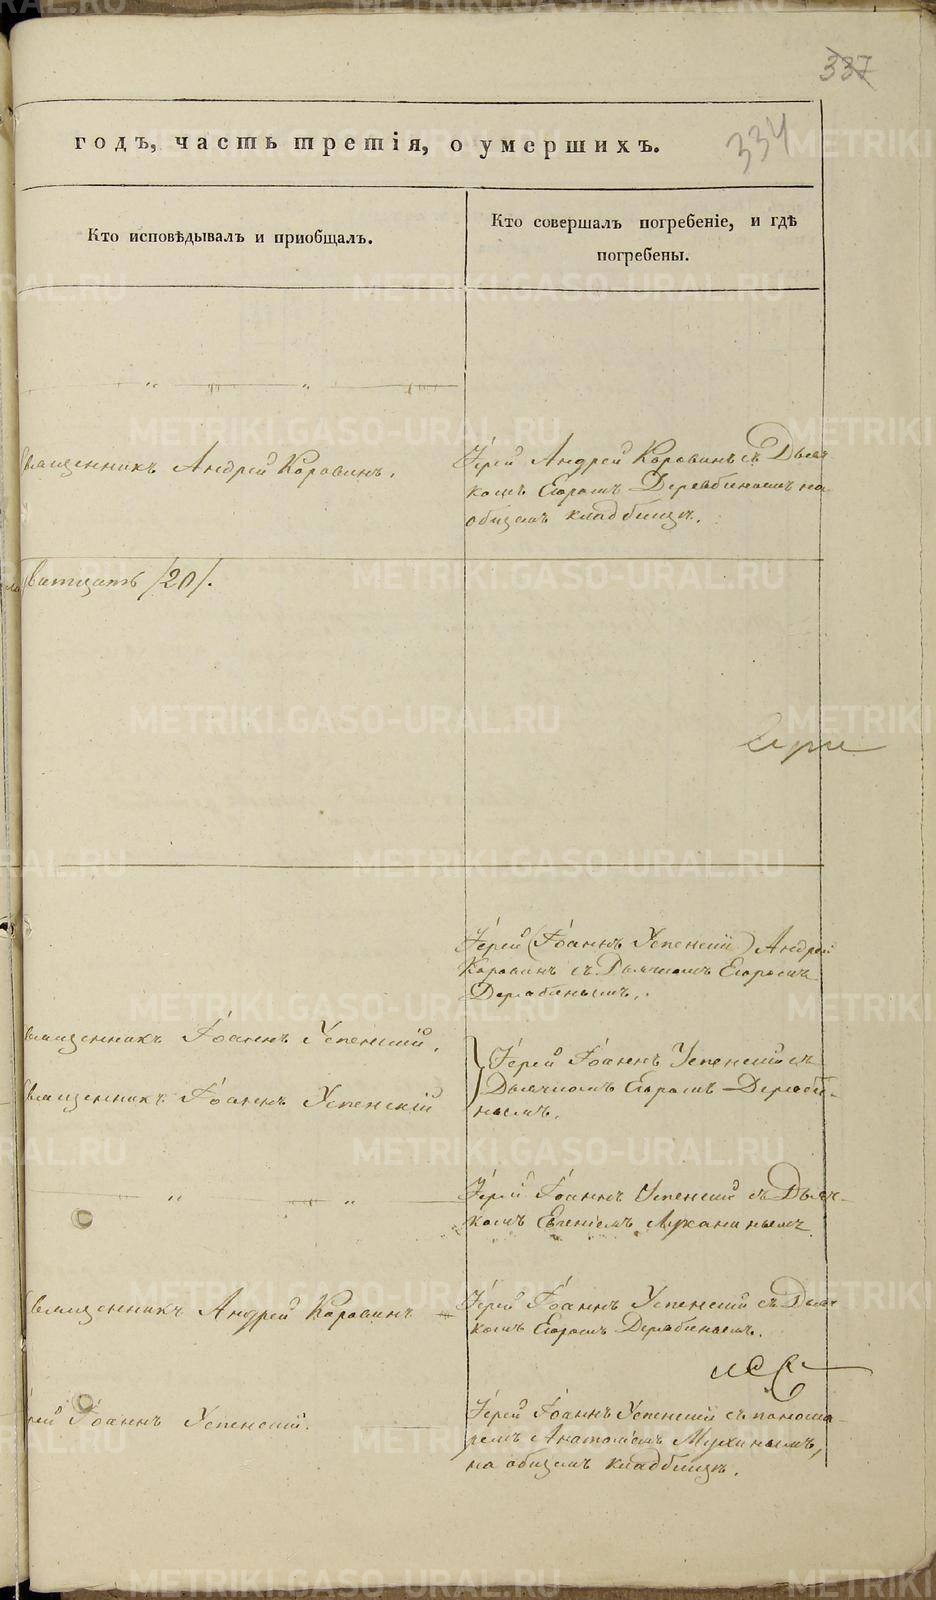 337
334
годъ, часть третія, о умершихъ.
Кто исповѣдывалъ и пріобщалъ.
Кто совершалъ погребеніе, и гдѣ
погребены.
Священникъ Андрей Коровинъ.
Іерей Андрей Коровинъ съ Дьяч-
комъ Егоромъ Дерябинымъ на
общемъ кладбищѣ.
дватцать /20/.
Іерей (Іоаннъ Успенскій) Андрей
Коровинъ съ Дьячкомъ Егоромъ
Дерябинымъ.
Священникъ Іоаннъ Успенскій.
Іерей Іоаннъ Успенскій съ
Дьячкомъ Егоромъ Деряби-
нымъ.
Священникъ Іоаннъ Успенскій
Іерей Іоаннъ Успенскій съ Дьяч-
комъ Евгеніемъ
Священникъ Андрей Коровинъ
Іерей Іоаннъ Успенскій съ Дьяч-
комъ Егоромъ Дерябинымъ.
Іерей Іоаннъ Успенскій.
Іерей Іоаннъ Успенскій съ понома-
ремъ Анатоліемъ Мухинымъ,
на общемъ кладбищѣ.
METRIKI.GASO-URAL.RU